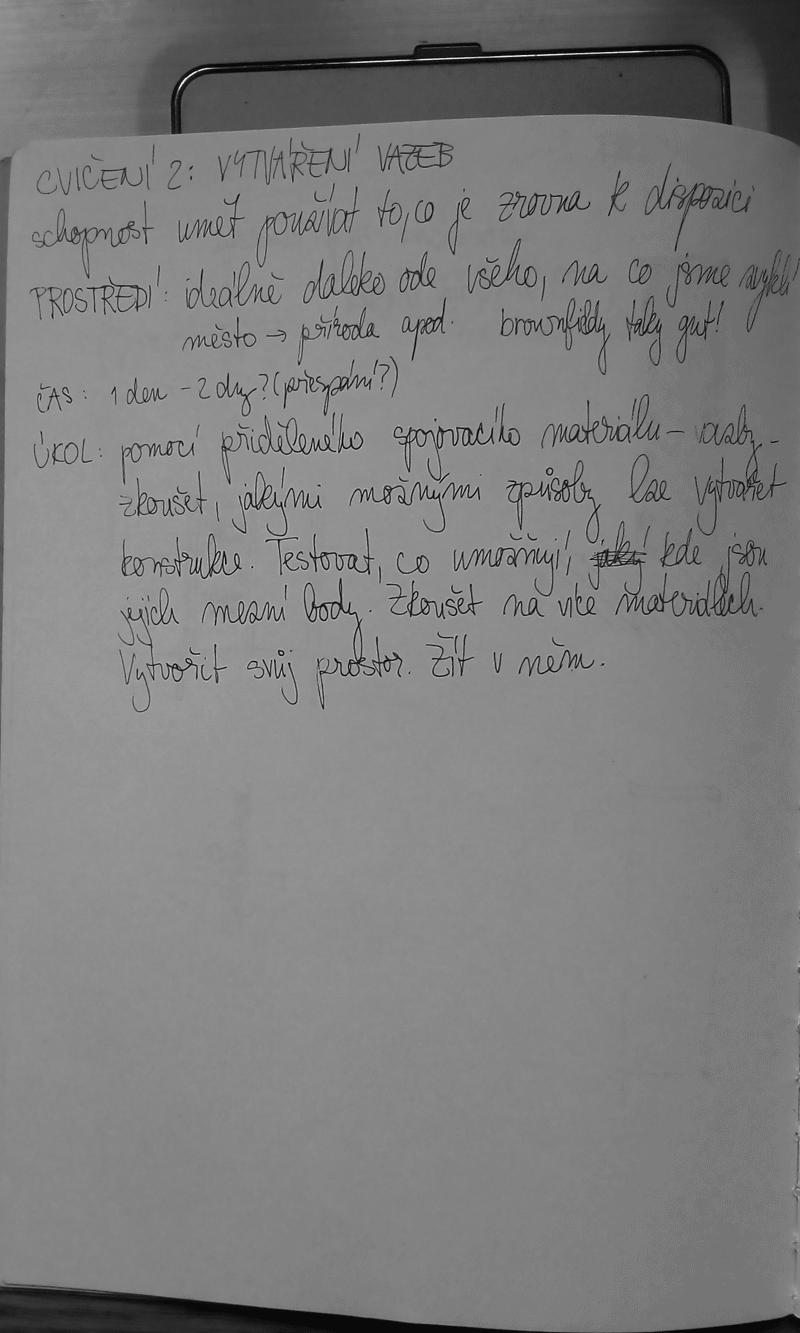 CVIČENÍ 2: VYTVÁŘENÍ VAZEB
schopnost umět používat to, co je zrovna k dispozici
PROSTŘEDÍ: ideálně daleko ode všeho, na co jsme zvyklí
město → příroda apod. brownfieldy taky gut!
ČAS: 1 den - 2 dny? (přespání?)
ÚKOL: pomocí přiděleného spojovacího materiálu - vazby -
zkoušet, jakými možnými způsoby lze vytvářet
konstrukce. Testovat, co umožňují, kde jsou
jejich mezní body. Zkoušet na více materiálech.
Vytvořit svůj prostor. Žít v něm.